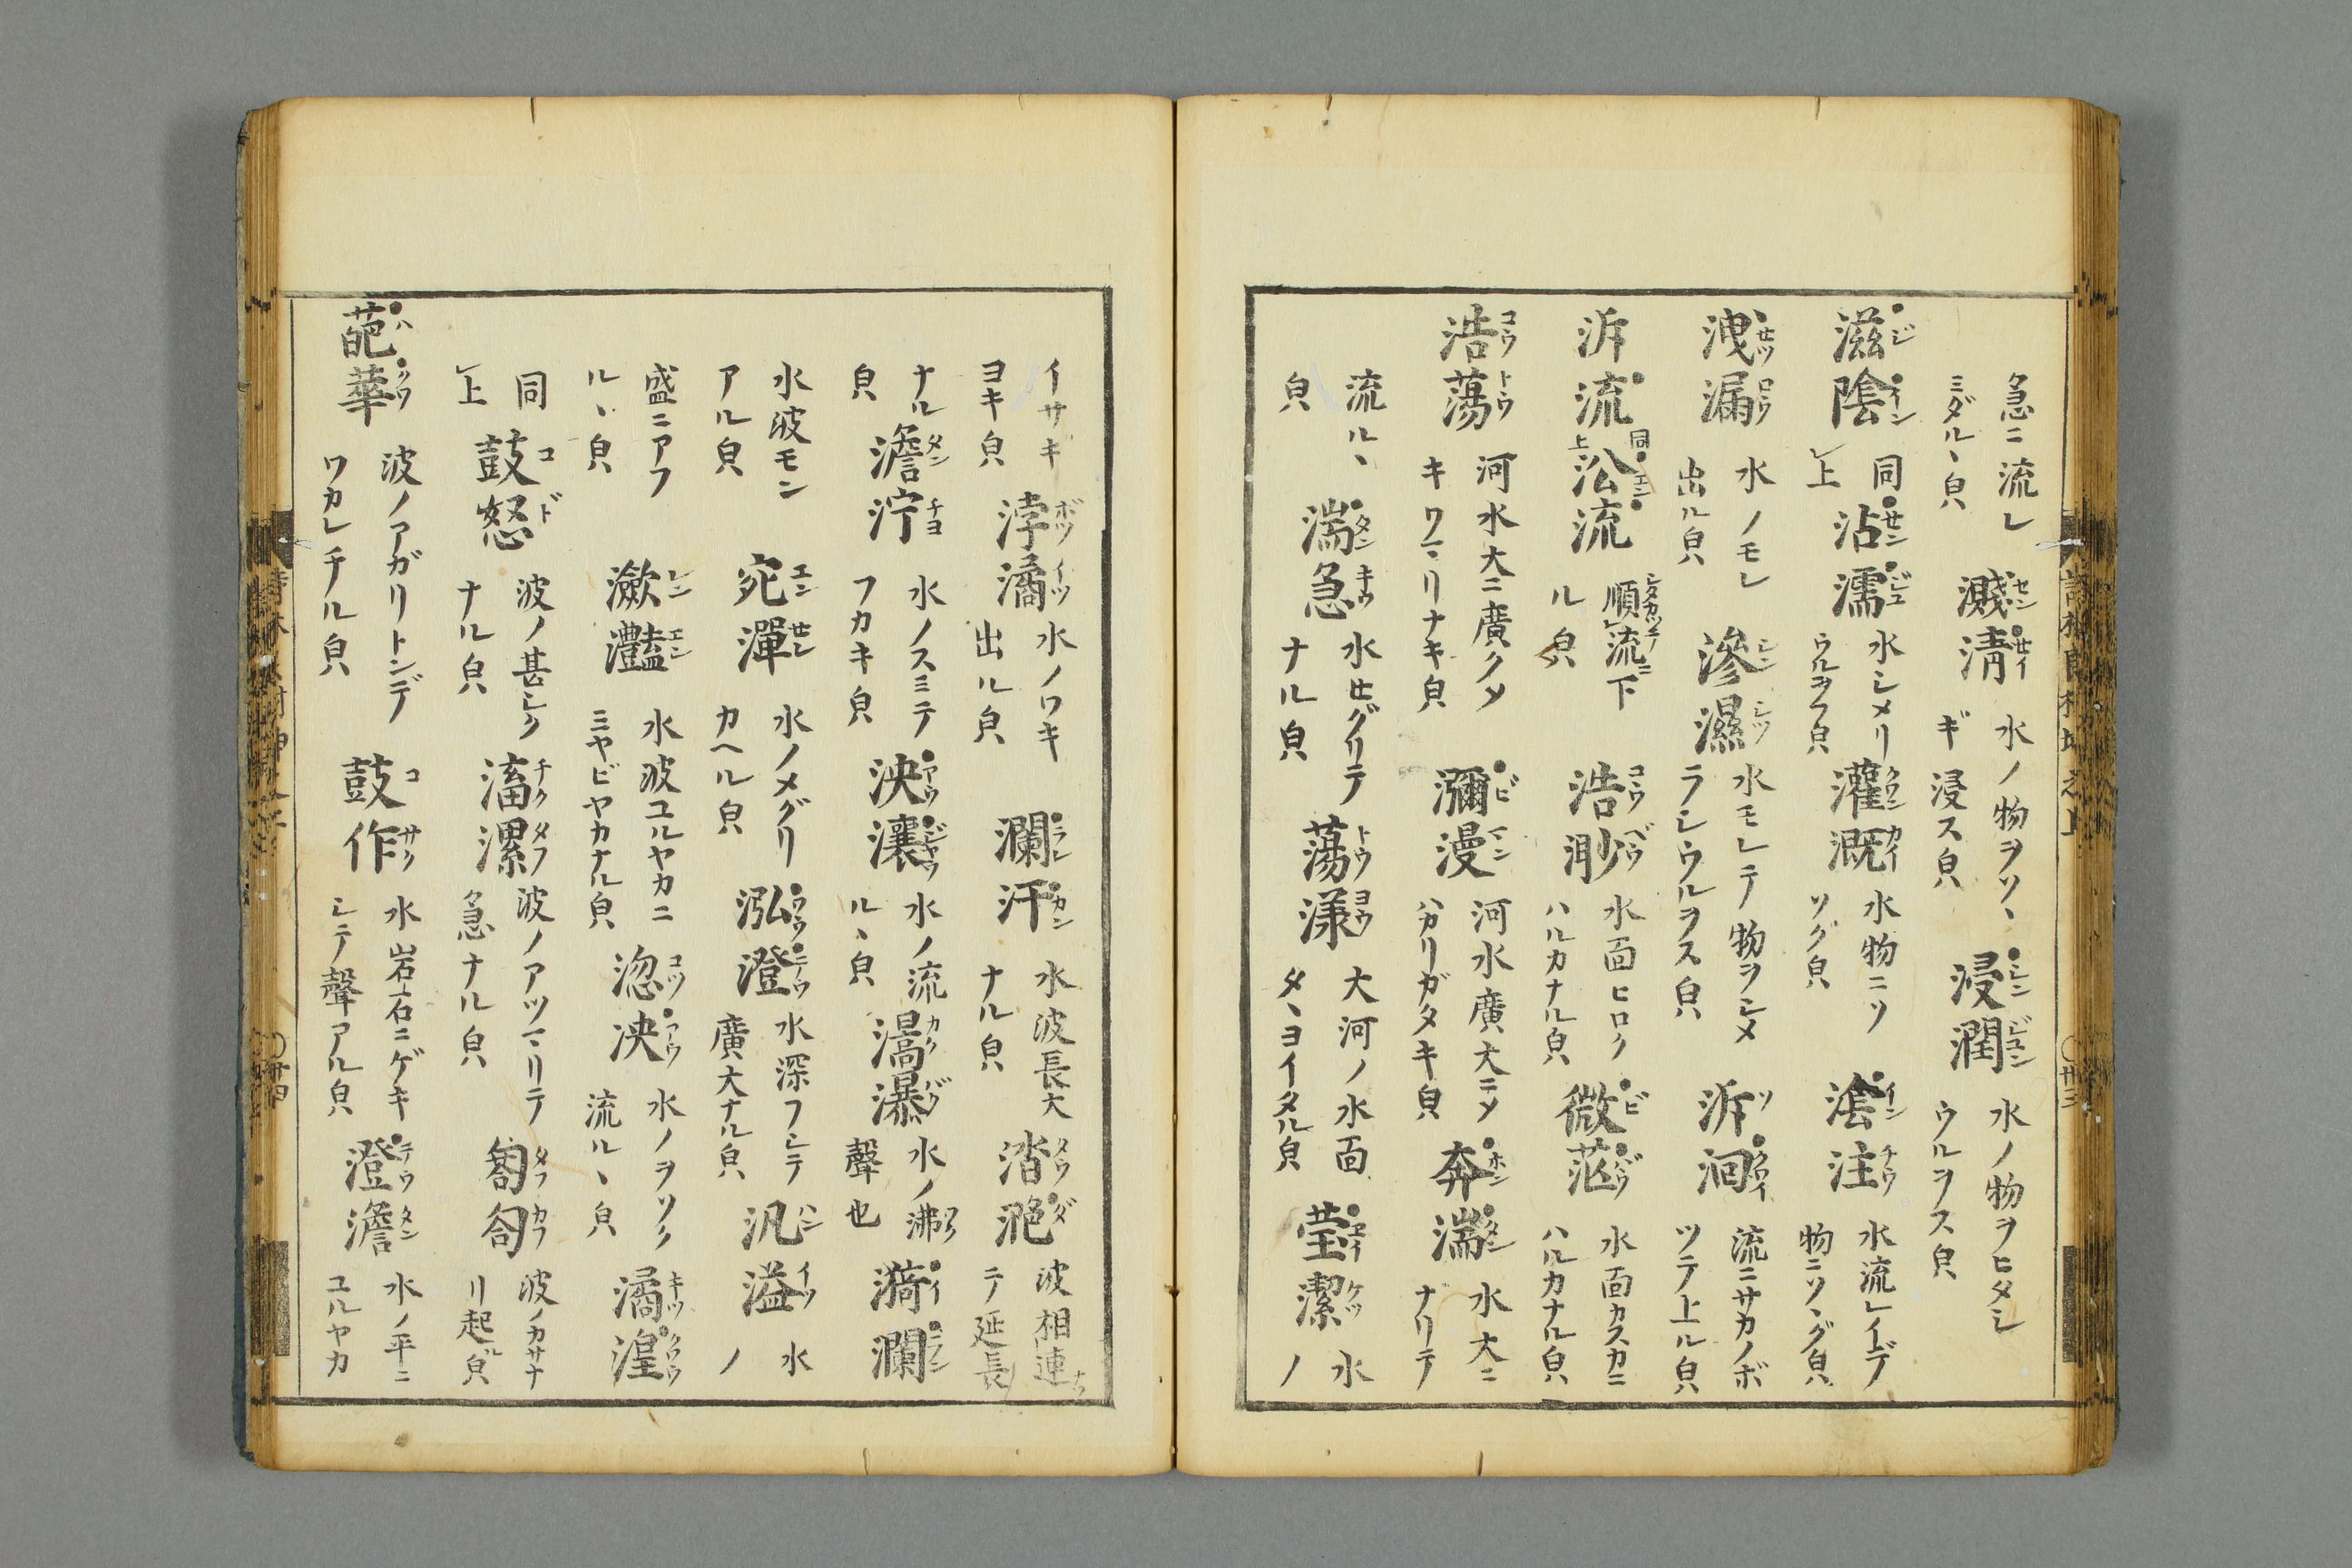 急ニ流レミダルヽ皃 濺淸 水ノ物ヲソヽギ浸ス皃 浸潤 水ノ物ヲヒタシウルヲス皃
滋陰 同上 沾濡 水シメリウルヲフ皃 灌漑 水物ニソソグ皃 注 水流レイデ物ニソヽグ皃
洩漏 水ノモレ出ル皃 滲濕 水モレテ物ヲシメラシウルヲス皃 泝洄 流ニサカノボツテ上ル皃
泝流 同上 㳂流 順流ニ下ル皃 浩渺 水面ヒロクハルカナル皃 微茫 水面カスカニハルカナル皃
浩蕩 河水大ニ廣クメキワマリナキ皃 瀰漫 河水廣大ニメハカリガタキ皃 奔湍 水大ニナリテ
流ルヽ皃 湍急 水セグリテナル皃 蕩漾 大河ノ水面タヽヨイタル皃 瑩潔 水ノ
イサギヨキ皃 浡潏 水ノワキ出ル皃 瀾汗 水波長大ナル皃 水波相連テ延長
ナル皃 澹泞 水ノスミテフカキ皃 泱瀼 水ノ流ルヽ皃 滈瀑 水ノ沸聲也 漪瀾
水波モンアル皃 宛潬 水ノメグリカヘル皃 泓澄 水深フシテ廣大ナル皃 汎溢 水ノ
盛ニアフルヽ皃 瀲灩 水波ユルヤカニミヤビヤカナル皃 淴泱 水ノヲソク流ルヽ皃 潏湟
同上 鼓怒 波ノ甚シクナル皃 滀漯 波ノアツマリテ急ナル皃 匒匌 波ノカサナリ起ル皃
葩華 波ノアガリトンデワカレチル皃 鼓作 水岩石ニゲキシテ聲アル皃 澄澹 水ノ平ニユルヤカ